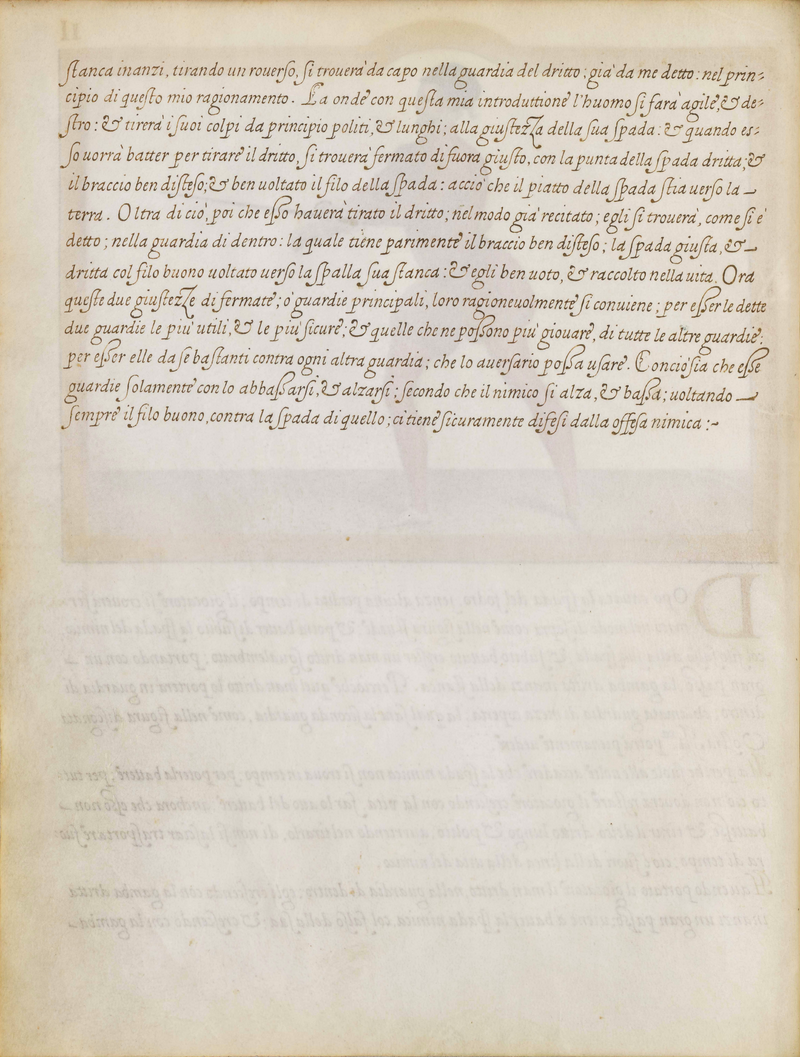 stanca inanzi, tirando un rouerso, si trouerà da capo nella guardia del dritto; già da me detto: nel prin-
cipio di questo mio ragionamento. La onde con questa mia introduttione l'huomo si farà agile, & de-
stro: & tirerà i suoi colpi da principio politi, & lunghi; alla giustezza della sua spada: & quando es-
so uorrà batter per tirare il dritto, si trouerà fermato di fuora giusto, con la punta della spada dritta; &
il braccio ben disteso; & ben uoltato il filo della spada: acciò che il piatto della spada stia uerso la
terra. Oltra di ciò, poi che esso hauerà tirato il dritto; nel modo già recitato; egli si trouerà, come si è
detto; nella guardia di dentro: la quale tiene parimente il braccio ben disteso; la spada giusta, &
dritta col filo buono uoltato uerso la spalla sua stanca: & egli ben uoto, & raccolto nella uita. Ora
queste due giustezze di fermate; ò guardie principali, loro ragioneuolmente si conuiene; per esser le dette
due guardie le più utili, & le più sicure; & quelle che ne possono più giouare, di tutte le altre guardie:
per esser elle da se bastanti contra ogni altra guardia; che lo auersario possa usare. Conciosia che esse
guardie solamente con lo abbassarsi, & alzarsi; secondo che il nimico si alza, & bassa; uoltando
sempre il filo buono, contra la spada di quello; ci tiene sicuramente difesi dalla offesa nimica:~